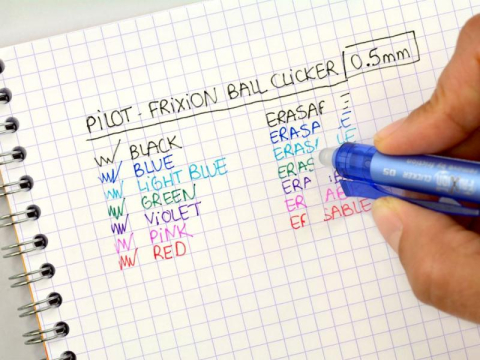 PILOT - FRIXION BALL CLICKER 0.5mm
BLACK ERASAF E
BLUE ERASA E
LIGHT BLUE ERAS LE
GREEN ERAS
VIOLET ERA LE
PINK ER AB
RED EF SABLE
05